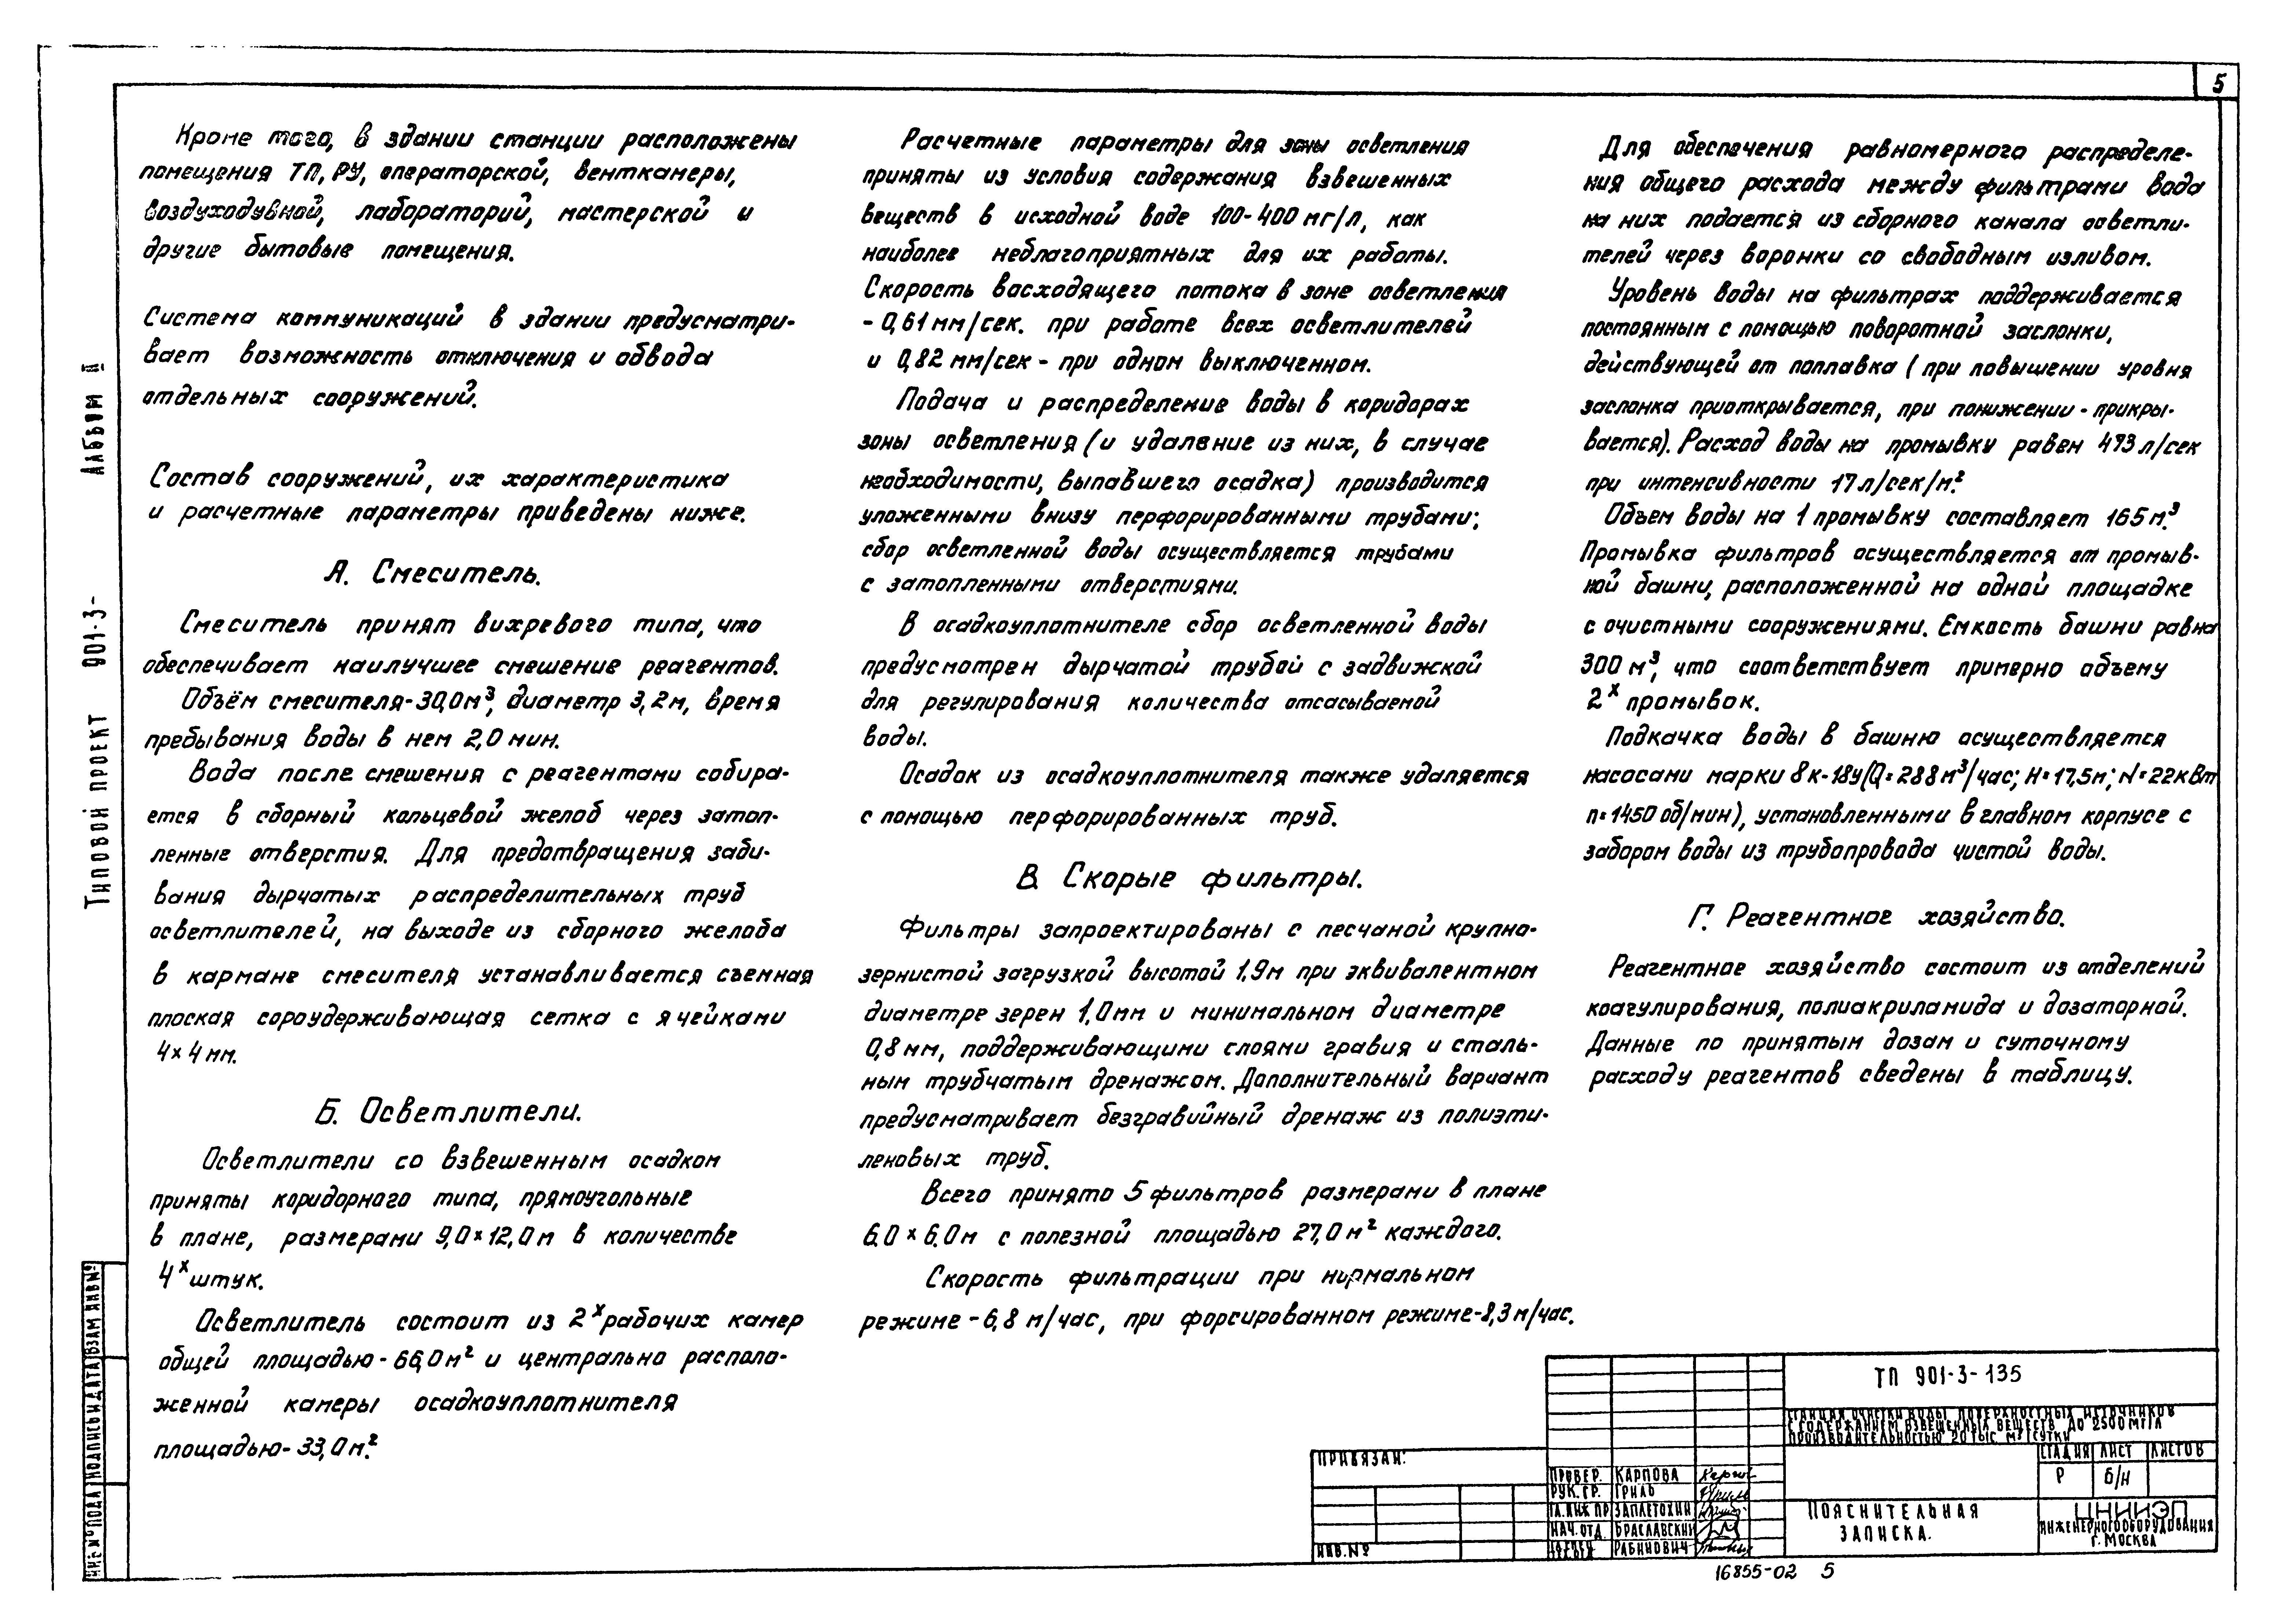 5
Кроме того, в здании станции расположены
помещения ТП, РУ, операторской, венткамеры,
воздуходувной, лабораторий, мастерской и
другие бытовые помещения.
Система коммуникаций в здании предусматри-
вает возможность отключения и обвода
отдельных сооружений.
Состав сооружений, их характеристика
и расчетные параметры приведены ниже.
А. Смеситель.
Смеситель принят вихревого типа, что
обеспечивает наилучшее смешение реагентов.
Объём смесителя-30,0м³, диаметр 3,2м, время
пребывания воды в нем 2,0 мин.
Вода после смешения с реагентами собира-
ется в сборный кольцевой желоб через затоп-
ленные отверстия. Для предотвращения заби-
вания дырчатых распределительных труб
осветлителей, на выходе из сборного желоба
в кармане смесителя устанавливается съемная
плоская сороудерживающая сетка с ячейками
4×4 мм.
Б. Осветлители.
Осветлители со взвешенным осадком
приняты коридорного типа, прямоугольные
в плане, размерами 9,0×12,0м в количестве
4ˣ штук.
Осветлитель состоит из 2ˣ рабочих камер
общей площадью-66,0м² и центрально располо-
женной камеры осадкоуплотнителя
площадью-33,0м².
Расчетные параметры для зоны осветления
приняты из условия содержания взвешенных
веществ в исходной воде 100-400 мг/л, как
наиболее неблагоприятных для их работы.
Скорость восходящего потока в зоне осветления
- 0,61мм/сек. при работе всех осветлителей
и 0,82 мм/сек - при одном выключенном.
Подача и распределение воды в коридорах
зоны осветления (и удаление из них, в случае
необходимости, выпавшего осадка) производится
уложенными внизу перфорированными трубами;
сбор осветленной воды осуществляется трубами
с затопленными отверстиями.
В осадкоуплотнителе сбор осветленной воды
предусмотрен дырчатой трубой с задвижкой
для регулирования количества отсасываемой
воды.
Осадок из осадкоуплотнителя также удаляется
с помощью перфорированных труб.
В. Скорые фильтры.
Фильтры запроектированы с песчаной крупно-
зернистой загрузкой высотой 1,9м при эквивалентном
диаметре зерен 1,0мм и минимальном диаметре
0,8мм, поддерживающими слоями гравия и сталь-
ным трубчатым дренажом. Дополнительный вариант
предусматривает безгравийный дренаж из полиэти-
леновых труб.
Всего принято 5 фильтров размерами в плане
6.0 × 6.0м с полезной площадью 27,0 м² каждого.
Скорость фильтрации при нормальном
режиме - 6,8 м/час, при форсированном режиме-8,3м/час.
Для обеспечения равномерного распределе-
ния общего расхода между фильтрами вода
на них подается из сборного канала осветли-
телей через воронки со свободным изливом.
Уровень воды на фильтрах поддерживается
постоянным с помощью поворотной заслонки,
действующей от поплавка (при повышении уровня
заслонка приоткрывается, при понижении - прикры-
вается). Расход воды на промывку равен 493л/сек
при интенсивности 17л/сек/м².
Объем воды на 1 промывку составляет 165м³.
Промывка фильтров осуществляется от промыв-
ной башни, расположенной на одной площадке
с очистными сооружениями. Емкость башни равна
300 м³, что соответствует примерно объему
2ˣ промывок.
Подкачка воды в башню осуществляется
насосами марки 8к-18у(Q=288м³/час; H=17,5м; N=22кВт
n=1450 об/мин), установленными в главном корпусе с
забором воды из трубопровода чистой воды.
Г. Реагентное хозяйство.
Реагентное хозяйство состоит из отделений
коагулирования, полиакриламида и дозаторной.
Данные по принятым дозам и суточному
расходу реагентов сведены в таблицу.
Альбом II
Типовой проект 901-3-
ИНВ № ПОДЛ ПОДПИСЬ И ДАТА ВЗАМ ИНВ №
ПРИВЯЗАН:
ИНВ. №
ПРОВЕР. КАРПОВА
РУК. ГР. ГРИЛЬ
ГЛ. ИНЖ ПР ЗАПЛЕТОХИН
НАЧ. ОТД БРАСЛАВСКИЙ
РАБИНОВИЧ
ТП 901-3-135
СТАНЦИЯ ОЧИСТКИ ВОДЫ ПОВЕРХНОСТНЫХ ИСТОЧНИКОВ
С СОДЕРЖАНИЕМ ВЗВЕШЕННЫХ ВЕЩЕСТВ ДО 2500 МГ/Л
ПРОИЗВОДИТЕЛЬНОСТЬЮ 20 ТЫС М³/СУТКИ
СТАДИЯ ЛИСТ ЛИСТОВ
Р б/н
ПОЯСНИТЕЛЬНАЯ
ЗАПИСКА.
ЦНИИЭП
ИНЖЕНЕРНОГО ОБОРУДОВАНИЯ
Г. МОСКВА
16855-02 5